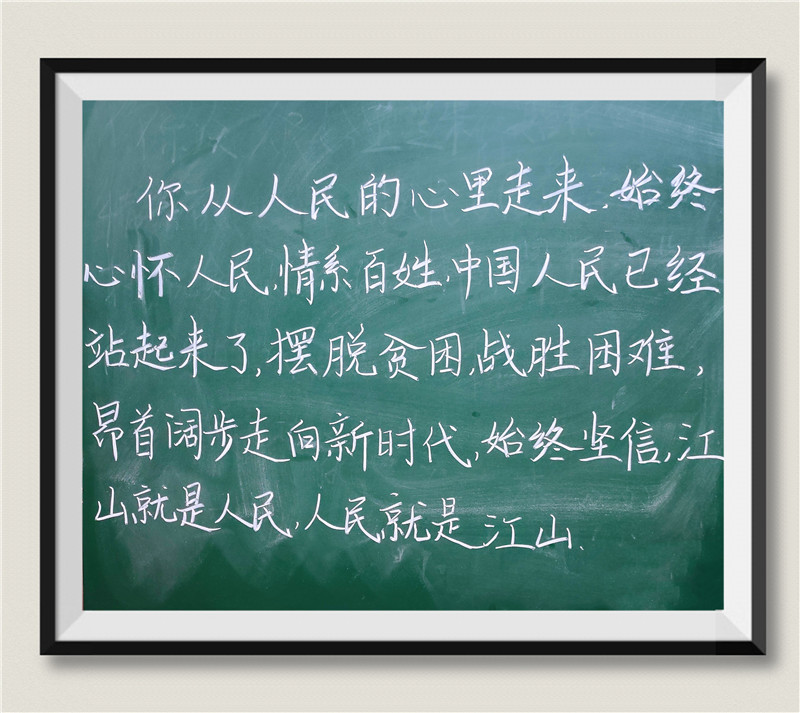 你从人民的心里走来.始终
心怀人民,情系百姓,中国人民已经
站起来了,摆脱贫困,战胜困难,
昂首阔步走向新时代,始终坚信,江
山就是人民,人民就是江山.